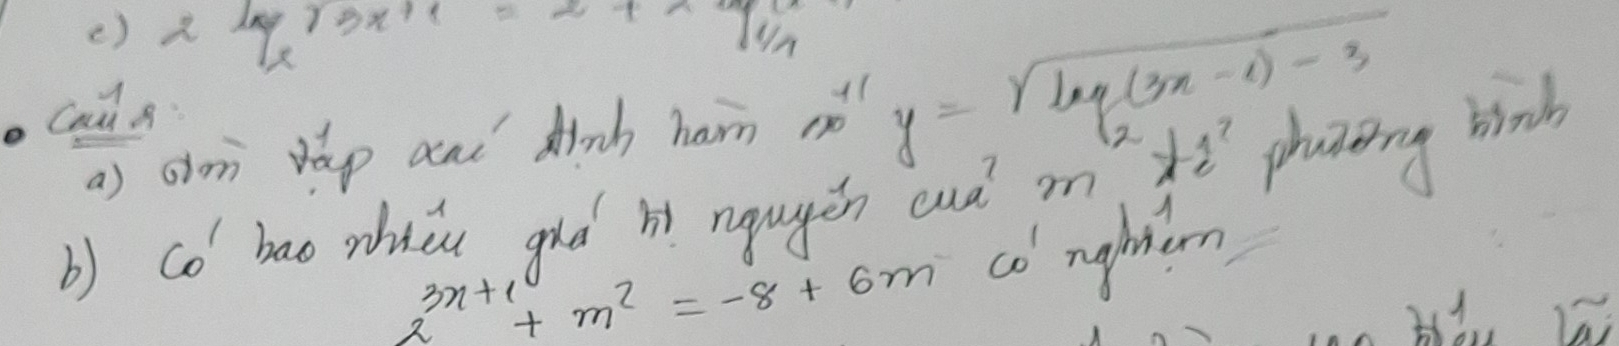 c) 2 log₂ √3x+1 = 2 +
Câu 2:
a) Tìm tập xác định hàm số y = √log₂(3x - 1) - 3
b) Có bao nhiêu giá trị nguyên của m để phương trình
2^{3x+1} + m² = -8 + 6m có nghiệm